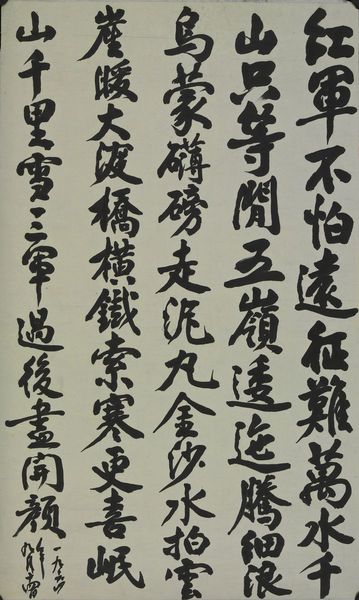 紅軍不怕遠征難萬水千
山只等閒五嶺逶迤騰細浪
烏蒙礴磅走泥丸金沙水拍雲
崖暖大渡橋橫鐵索寒更喜岷
山千里雪三軍過後盡開顏
一九六
年
九月